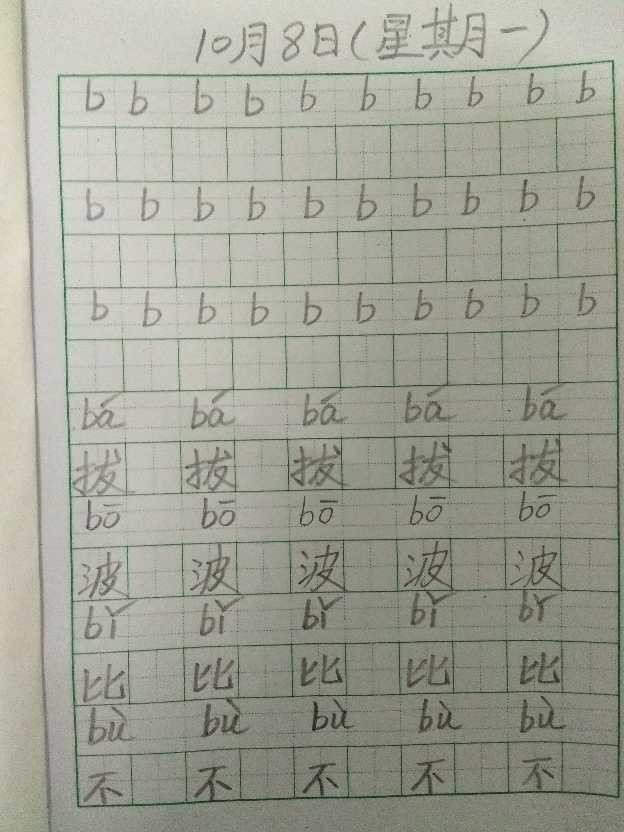 10月8日(星期一)
b b b b b b b b b b
b b b b b b b b b b
b b b b b b b b b b
bá bá bá bá bá
拔 拔 拔 拔 拔
bō bō bō bō bō
波 波 波 波 波
bǐ bǐ bǐ bǐ bǐ
比 比 比 比 比
bù bù bù bù bù
不 不 不 不 不